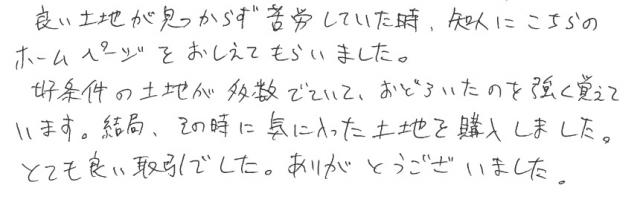 良い土地が見つからず苦労していた時、知人にこちらの
ホームページをおしえてもらいました。
好条件の土地が多数でていて、おどろいたのを強く覚えて
います。結局、その時に気に入った土地を購入しました。
とても良い取引でした。ありがとうございました。